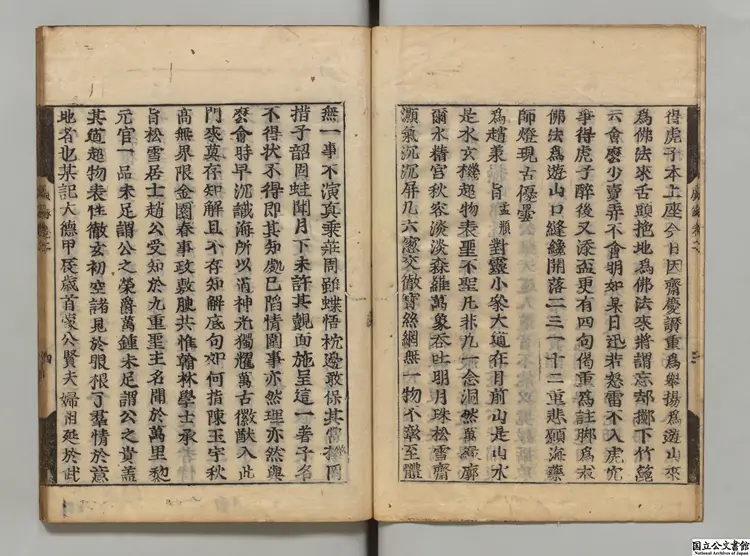 得虎子本上座今日因齋慶讚重為舉揚為遊山來
為佛法來舌頭拖地為佛法來將謂忘却擲下竹篦
云會麼少賣弄不會明如杲日迅若怒雷不入虎穴
爭得虎子醉後又添盃更有四句偈重為註腳為衣
佛法為遊山口縫纔開落二三一十二重悲願海藥
師燈現古優曇
為趙秉 旨孟頫對靈小參大道在目前山是山水
是水玄機超物表聖不聖凡非凡一念洞然萬緣廓
爾水楷宮秋容淡淡森羅萬象吞吐明月珠松雪齋
灝氣沉沉屏几六窓交徹寶絲網無一物不彰至體
無一事不演真乘莊周雖蝶悟枕邊敢保其
措子韶因蛙聞月下未許其覿面施呈這一著子名
不得狀不得即其知處已蹈情圍事亦然理亦然與
麼會時早沉識海所以道神光獨耀萬古徽猷入此
門來莫存知解且不存知解底句如何指陳玉宇秋
高無界限金園春事政敷腴共惟翰林學士承
旨松雪居士趙公受知於九重聖主名聞於萬里黎
元官一品未足謂公之榮爵萬鍾未足謂公之貴蓋
其道超物表性徹玄初空諸見於眼根了羣情於意
地者也某記大德甲辰歲首蒙公賢夫婦相延於武
三
四
国立公文書館
National Archives of Japan